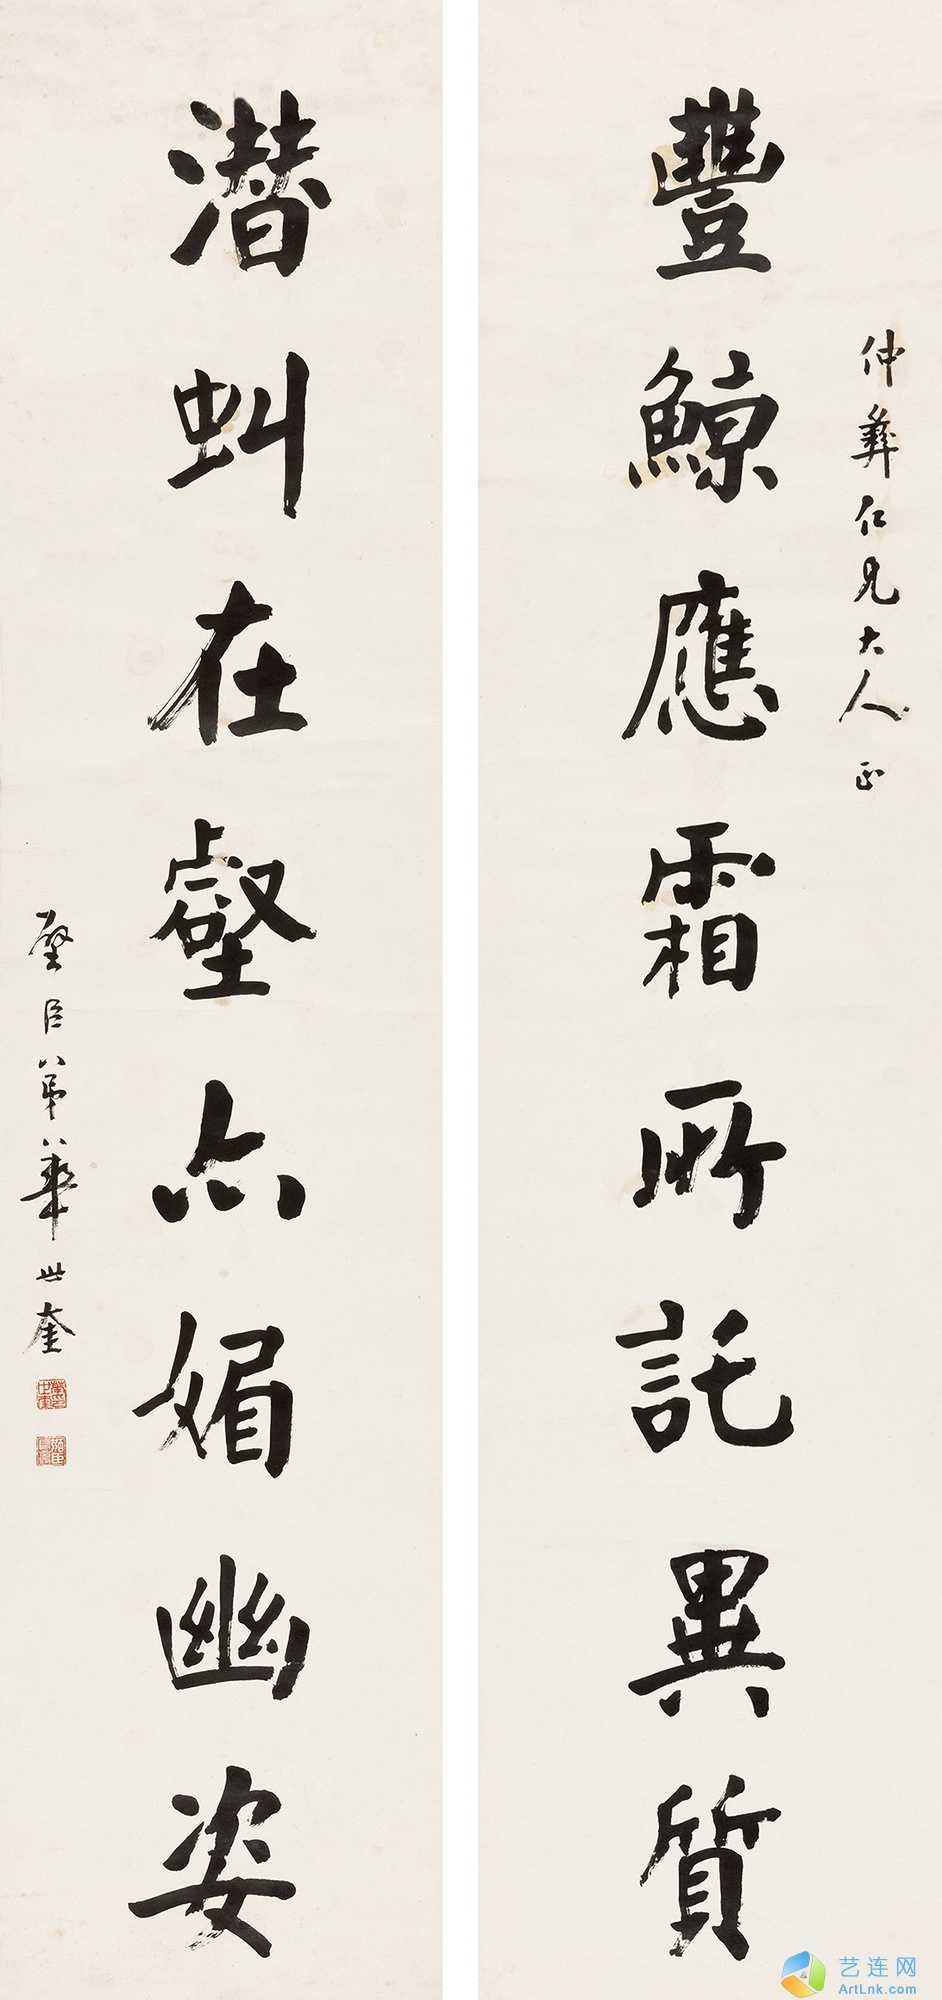 仲彝仁兄大人正
豐鯨應霜所託異質
潛虯在壑亦媚幽姿
璧臣弟華世奎
艺连网
ArtLnk.com